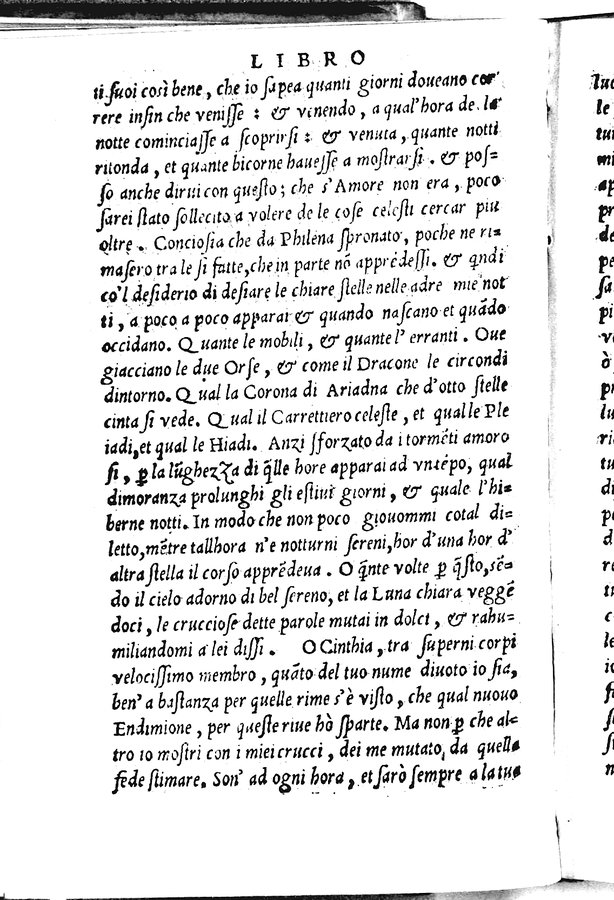 LIBRO
ti ſuoi così bene, che io ſapea quanti giorni doueano cor
rere inſin che veniſſe : & vinendo, a qual'hora de la
notte cominciaſſe a ſcoprirſi : & venuta, quante notti
ritonda, et quante bicorne haueſſe a moſtrarſi. & poſ=
ſo anche dirui con queſto; che s'Amore non era, poco
ſarei ſtato ſollecito a volere de le coſe celeſti cercar piu
oltre. Concioſia che da Philena ſpronato, poche ne ri=
maſero tra le ſi fatte, che in parte nō apprēdeſſi. & q̄ndi
co'l deſiderio di deſiare le chiare ſtelle nelle adre mie not
ti, a poco a poco apparai & quando naſcano et quādo
occidano. Quante le mobili, & quante l'erranti. Oue
giacciano le due Orſe, & come il Dracone le circondi
dintorno. Qual la Corona di Ariadna che d'otto ſtelle
cinta ſi vede. Qual il Carrettiero celeſte, et qual le Ple
iadi, et qual le Hiadi. Anzi sforzato da i tormēti amoro
ſi, ꝑ la lūghezza di q̄lle hore apparai ad vn tēpo, qual
dimoranza prolunghi gli eſtiui giorni, & quale l'hi=
berne notti. In modo che non poco giouommi cotal di=
letto, mētre tallhora n'e notturni ſereni, hor d'una hor d'
altra ſtella il corſo apprēdeua. O q̄nte volte ꝑ q̄ſto, ſē=
do il cielo adorno di bel ſereno, et la Luna chiara veggē
doci, le crucciose dette parole mutai in dolci, & rahu=
miliandomi a lei diſſi. O Cinthia, tra ſuperni corpi
velociſſimo membro, quāto del tuo nume diuoto io ſia,
ben' a baſtanza per quelle rime s'è viſto, che qual nuouo
Endimione, per queſte riue hò ſparte. Ma non ꝑ che al=
tro io moſtri con i miei crucci, dei me mutato, da quella
fede ſtimare. Son' ad ogni hora, et ſarò ſempre a la tua